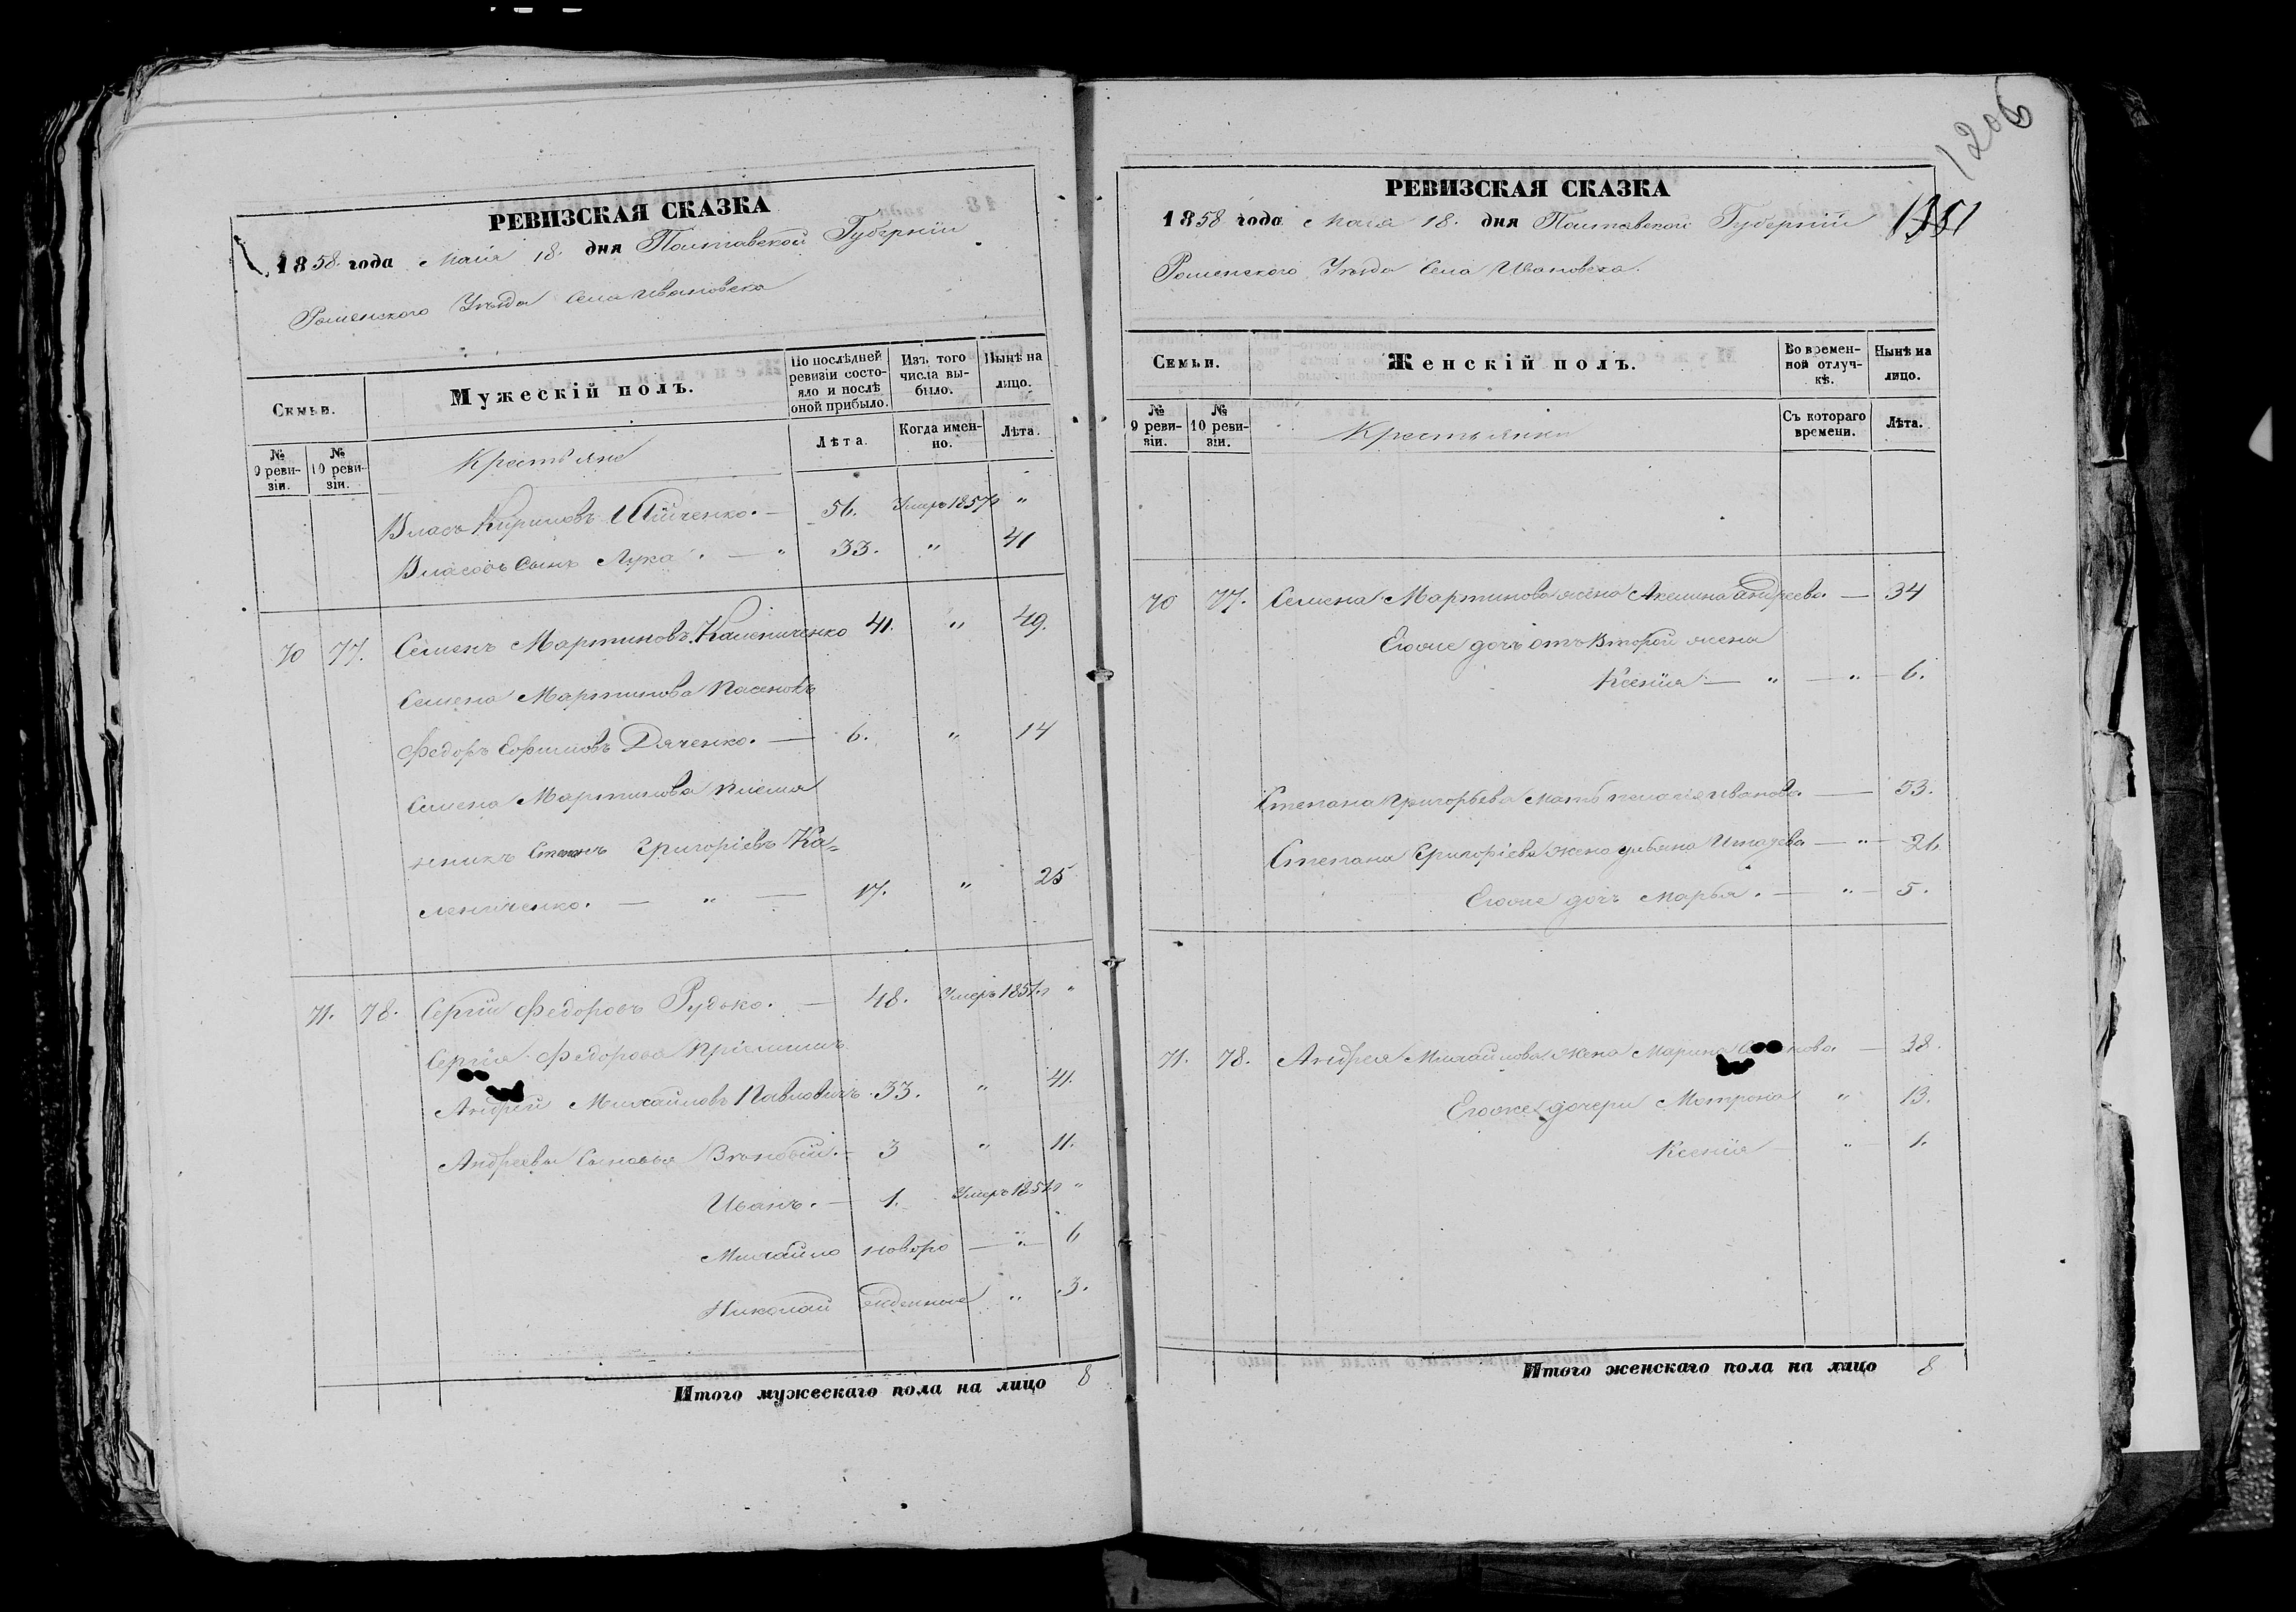 1206
РЕВИЗСКАЯ СКАЗКА
1858. года Маія 18. дня Полтавской Губерніи
Роменского Уѣзда Села Ивановска
Семьи.
Мужескій полъ.
По послѣдней ревизіи состояло и послѣ оной прибыло.
Изъ того числа выбыло.
Нынѣ на лицо.
№ 9 ревизіи.
№ 10 ревизіи.
Крестьяне
Лѣта.
Когда именно.
Лѣта.
Власъ Кириловъ — 56. Умеръ 1857г "
Власовъ сынъ Лука. — " 33. " 41
70 77. Семенъ Мартиновъ Калениченко 41. " 49.
Семена Мартинова пасенокъ
Федоръ Ефимовъ Дяченко. — 6. " 14
Семена Мартинова племя
нникъ Степанъ Григоріевъ Ка=
лениченко. — " — 17. " 25
71. 78. Сергій Федоровъ Рудько. — 48. Умеръ "
Сергія Федорова пріемышъ
Андрей Михайловъ Павловичъ 33. " 41.
Андреевы сыновья 3 " 11.
Иванъ. — 1. Умеръ "
Михайло новоро — " — 6
Николай жденные " 3.
Итого мужескаго пола на лицо 8
РЕВИЗСКАЯ СКАЗКА
1858 года Маія 18. дня Полтавской Губерніи
Роменского Уѣзда Села Ивановска.
Семьи.
Женскій полъ.
Во временной отлучкѣ.
Нынѣ на лицо.
№ 9 ревизіи.
№ 10 ревизіи.
Крестьянки
Съ котораго времени.
Лѣта.
70 77. Семена Мартинова жена Акелина Андреева. — 34
Егоже дочь отъ второй жены
Ксенія — " — " — 6.
Степана Григорьева мать Пелагія Иванова. — 53.
Степана Григоріева жена Ульяна — " — 26
Егоже дочь Марья. — " — 5.
71. 78. Андрея Михайлова жена Марина — 38.
Егоже дочери Мотрона " 13.
Ксенія — " 1.
Итого женскаго пола на лицо 8